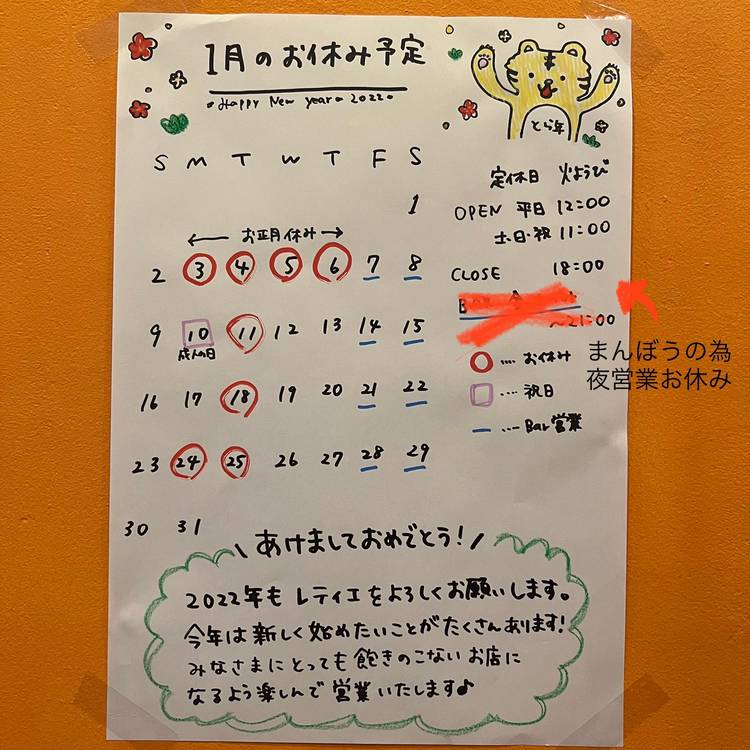 1月のお休み予定
Happy New year 2022
とら年
S M T W T F S
1
← お正月休み →
2 3 4 5 6 7 8
9 10 11 12 13 14 15
成人の日
16 17 18 19 20 21 22
23 24 25 26 27 28 29
30 31
定休日 火ようび
OPEN 平日 12:00
土・日・祝 11:00
CLOSE 18:00
〜21:00
まんぼうの為
夜営業お休み
.... お休み
.... 祝日
... Bar営業
\ あけましておめでとう! /
2022年も レティエをよろしくお願いします。
今年は新しく始めたいことがたくさんあります!
みなさまにとっても飽きのこないお店に
なるよう楽しんで営業いたします♪